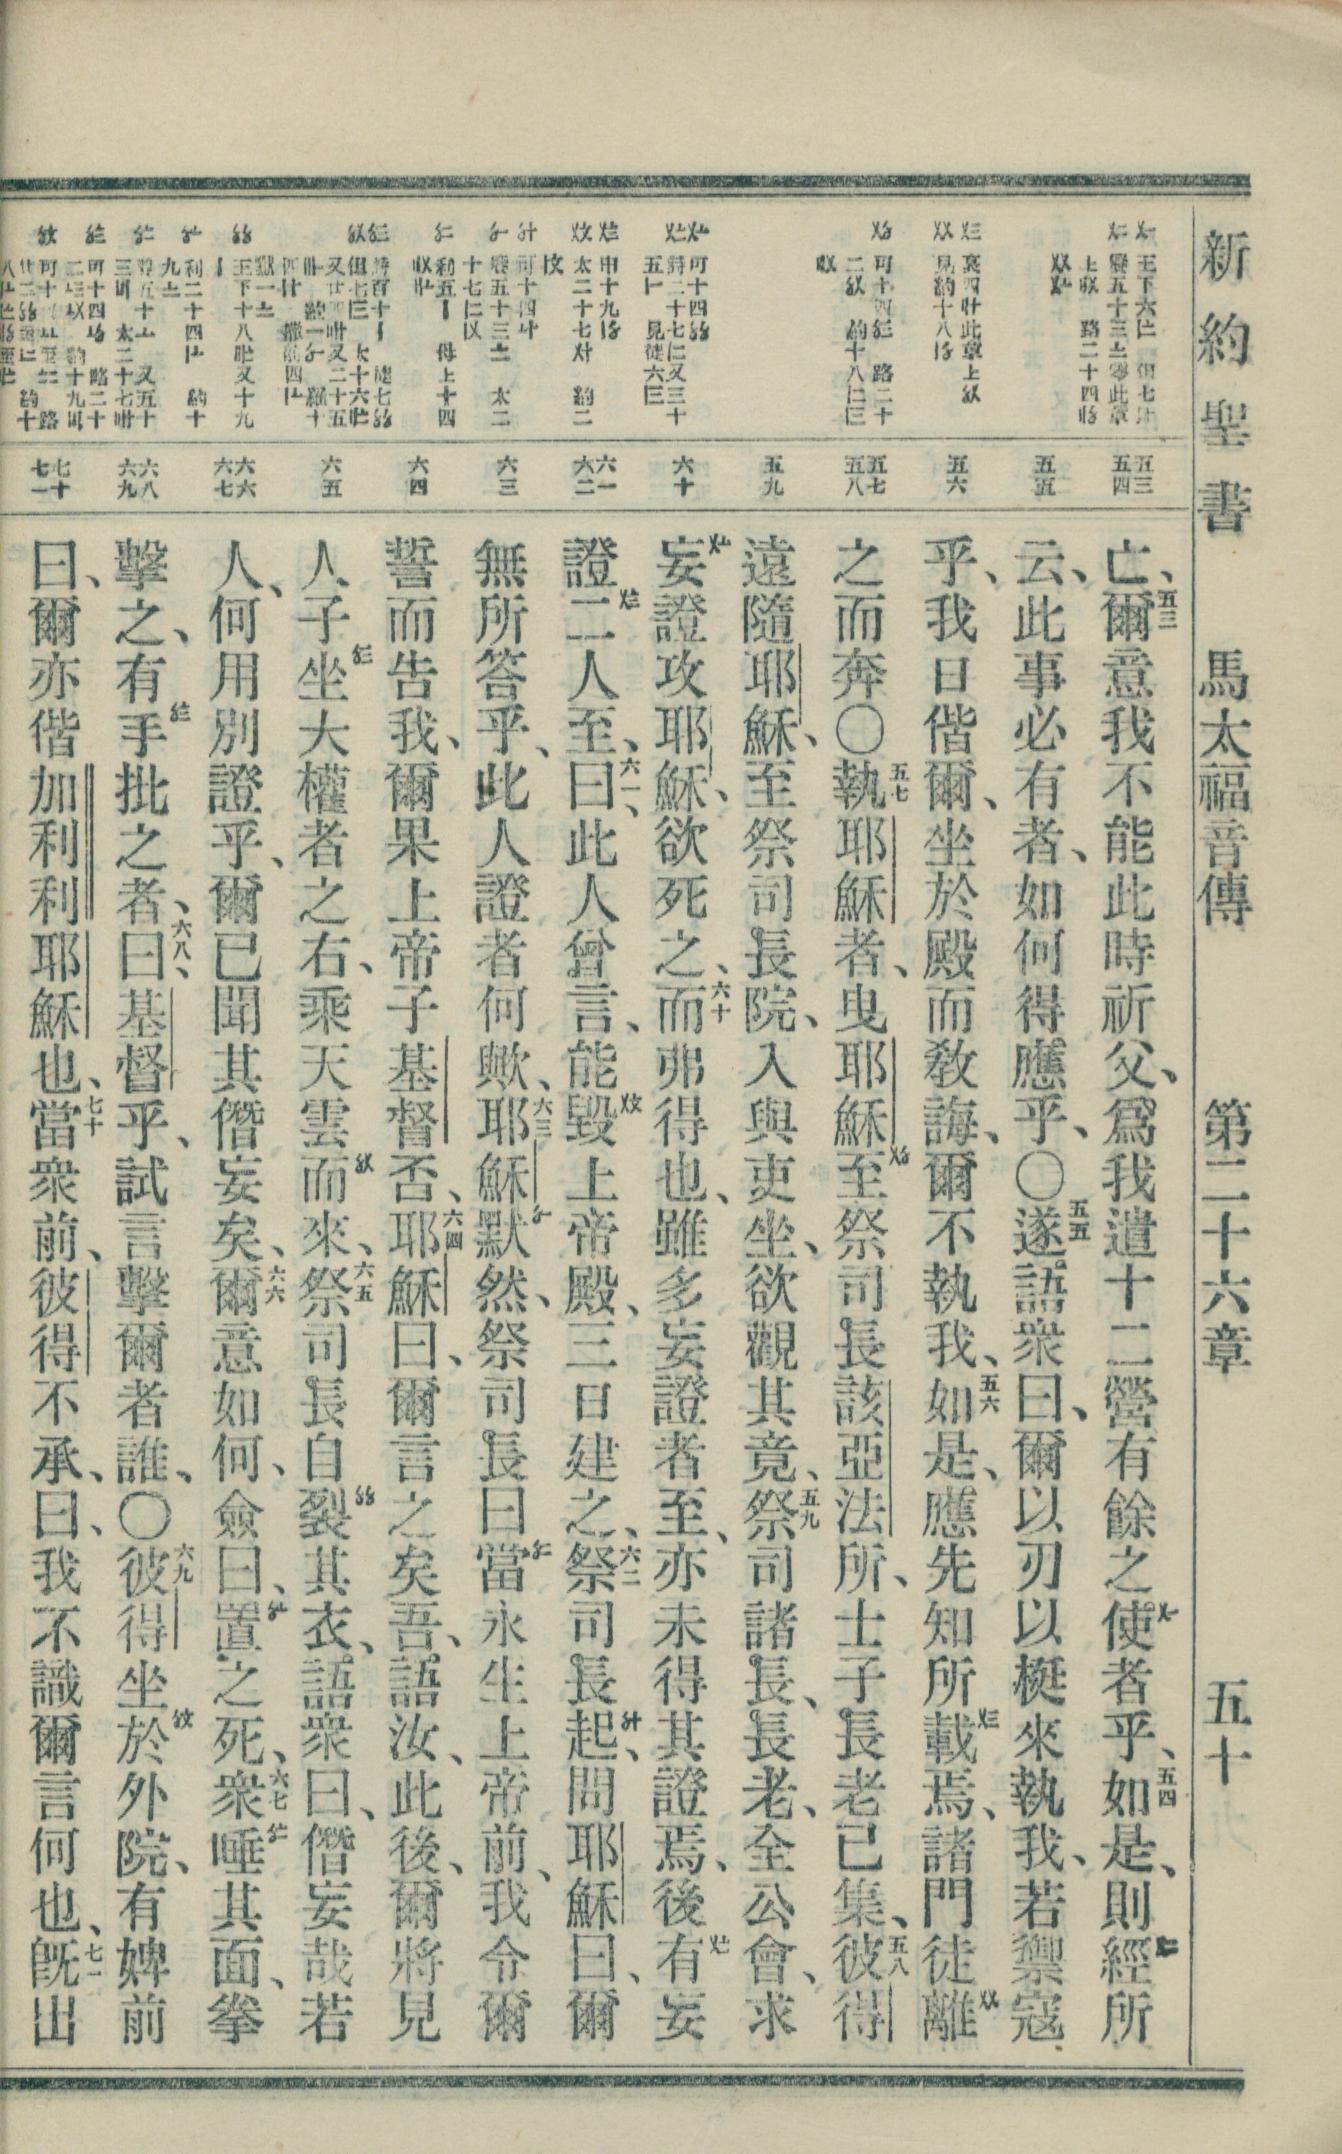 新約聖書 馬太福音傳 第二十六章 五十
五三
五四
五五
五六
五七
五八
五九
六十
六一
六二
六三
六四
六五
六六
六七
六八
六九
七十
七一
亡、五三爾意我不能此時祈父、爲我遣十二營有餘之使者乎、五四如是、則經所
云、此事必有者、如何得應乎、〇五五遂語衆曰、爾以刃以梃來執我、若禦寇
乎、我日偕爾、坐於殿而敎誨、爾不執我、五六如是、應先知所載焉、諸門徒離
之而奔〇五七執耶穌者、曳耶穌至祭司長該亞法所、士子長老已集、五八彼得
遠隨耶穌、至祭司長院、入與吏坐、欲觀其竟、五九祭司諸長、長老、全公會、求
妄證攻耶穌、欲死之、六十而弗得也、雖多妄證者至、亦未得其證焉、後有妄
證二人至、六一曰、此人曾言、能毀上帝殿、三日建之、六二祭司長起、問耶穌曰、爾
無所答乎、此人證者何歟、六三耶穌默然、祭司長曰當永生上帝前、我令爾
誓而告我、爾果上帝子基督否、六四耶穌曰、爾言之矣、吾語汝、此後、爾將見
人子坐大權者之右、乘天雲而來、六五祭司長自裂其衣、語衆曰、僭妄哉、若
人、何用別證乎、爾已聞其僭妄矣、六六爾意如何、僉曰、置之死、六七衆唾其面、拳
擊之、有手批之者、六八曰、基督乎、試言擊爾者誰、〇六九彼得坐於外院、有婢前
曰、爾亦偕加利利耶穌也、七十當衆前、彼得不承、曰、我不識爾言何也、七一旣出